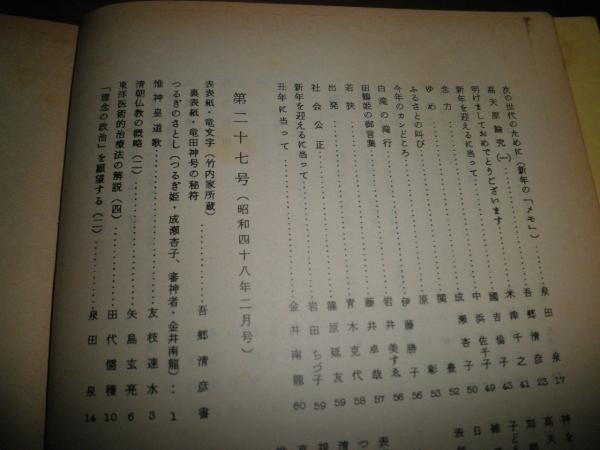 次の世代のために(新年の「メモ」)……泉田 泉 17
高天原論究(一)……吾郷清彦 23
明けましておめでとうございます……米津千之 41
新年を迎えるに当って……國吉倫子 43
念力……中浜佐千子 49
ゆめ……成瀬杏子 50
ふるさとの叫び……関 豊 52
今年のカンどころ……原 彰 53
白滝の滝行……伊藤勝子 56
田鶴姫の御言葉……岩井美すゑ 56
若狭……藤井卓哉 57
出発……青木克代 58
社会公正……篠原延友 59
新年を迎えるに当って……岩田ちづ子 59
丑年に当って……金井南龍 60
第二十七号(昭和四十八年二月号)
表表紙・竜文字(竹内家所蔵)
裏表紙・竜田神号の秘符……吾郷清彦書
つるぎのさとし(つるぎ姫・成瀬杏子、審神者・金井南龍)‥1
惟神皇道歌……友枝速水 3
清朝仏教の概略(二)……矢島玄亮 6
東洋医術的治療法の解説(四)……田代儒穫 10
「理念の政治」を願望する(二)……泉田 泉 14
神を
高天